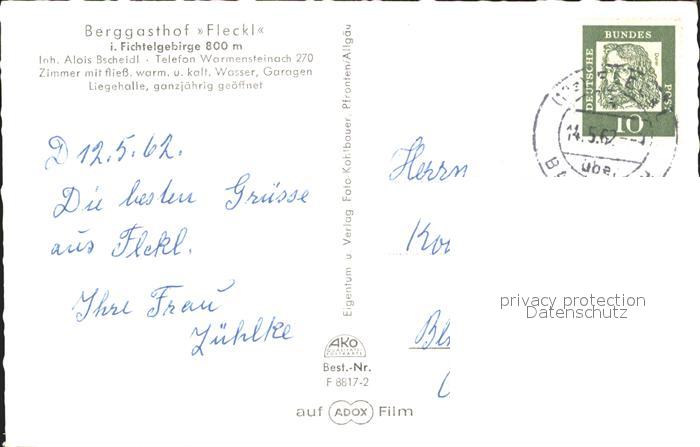 Berggasthof »Fleckl«
i. Fichtelgebirge 800 m
Inh. Alois Bscheidl · Telefon Warmensteinach 270
Zimmer mit fließ. warm. u. kalt. Wasser, Garagen
Liegehalle, ganzjährig geöffnet
D 12.5.62.
Die besten Grüsse
aus Fleckl.
Ihre Frau
Zühlke
Eigentum u. Verlag Foto-Kohlbauer, Pfronten/Allgäu
AKO
QUALITÄTS
POSTKARTE
Best.-Nr.
F 8817-2
auf ADOX Film
DEUTSCHE
BUNDES
POST
10
14.5.62
über
Herrn
privacy protection
Datenschutz